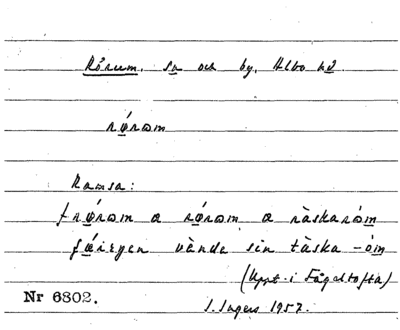 Rörum, sn och by, Albo hd.
rørøm
Ramsa:
frørøm a rørøm a ràskarøm
færgen vände sin tàska -øm
(Uppt. i Fågeltofta)
Nr 6802.
I. Ingers 1957.